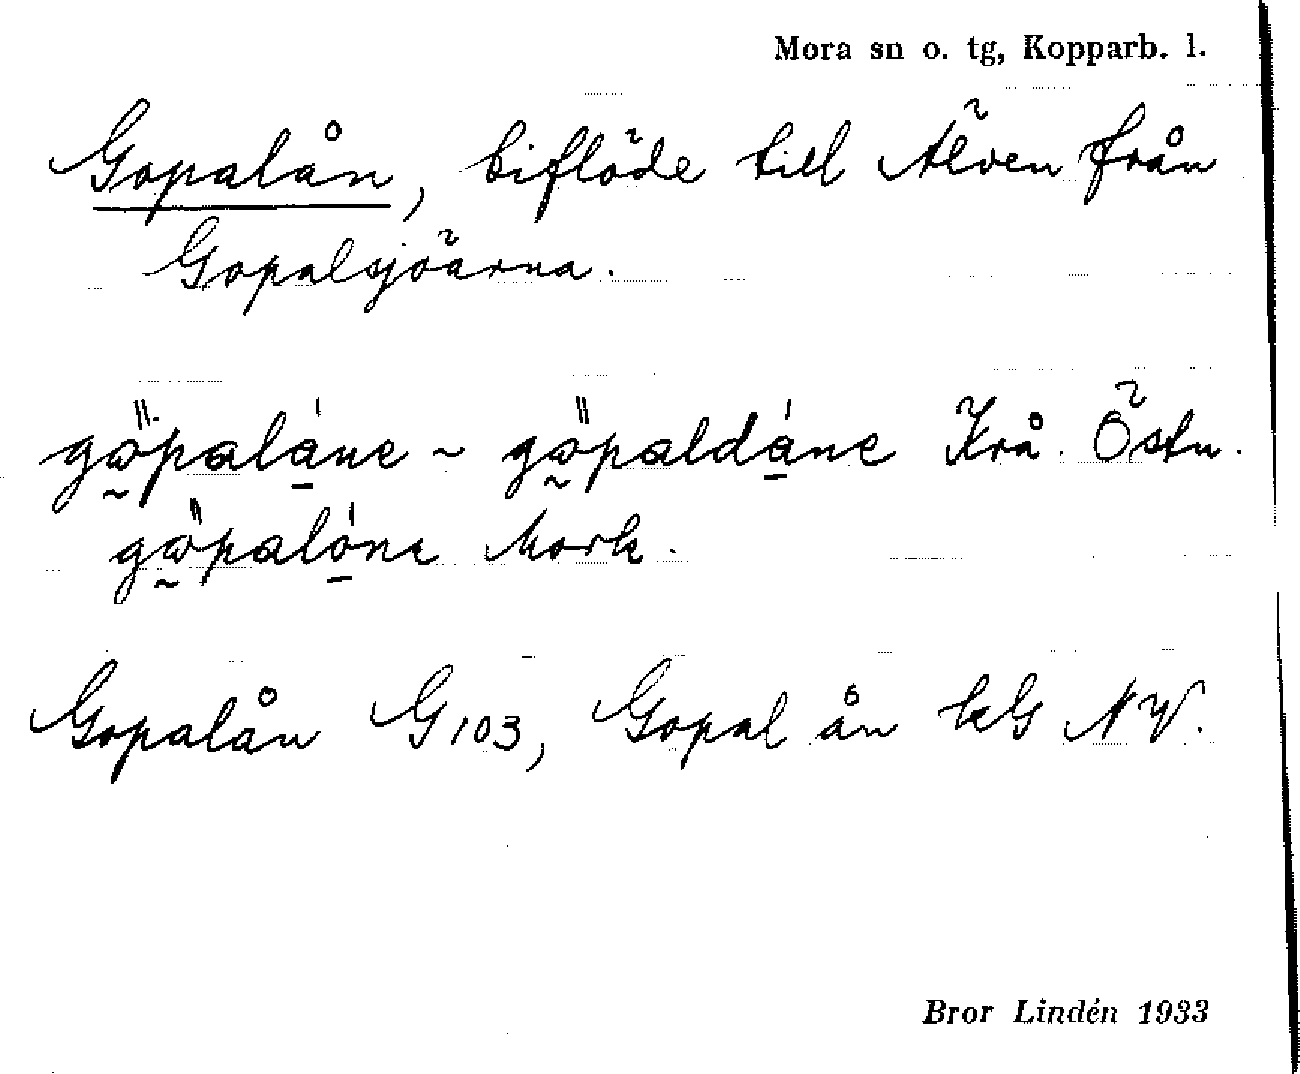 Mora sn o. tg, Kopparb. l.
Gopalån, biflöde till Älven från
Gopalsjöarna.
gω̰̋palá̱ne ~ gω̰̋paldá̱ne Krå. Östn.
gω̰̋paló̱ne Mork.
Gopalån G103, Gopal ån kG NV.
Bror Lindén 1933